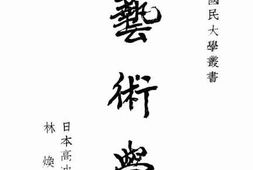 國民大學叢書
藝術學
日本高沖
林煥